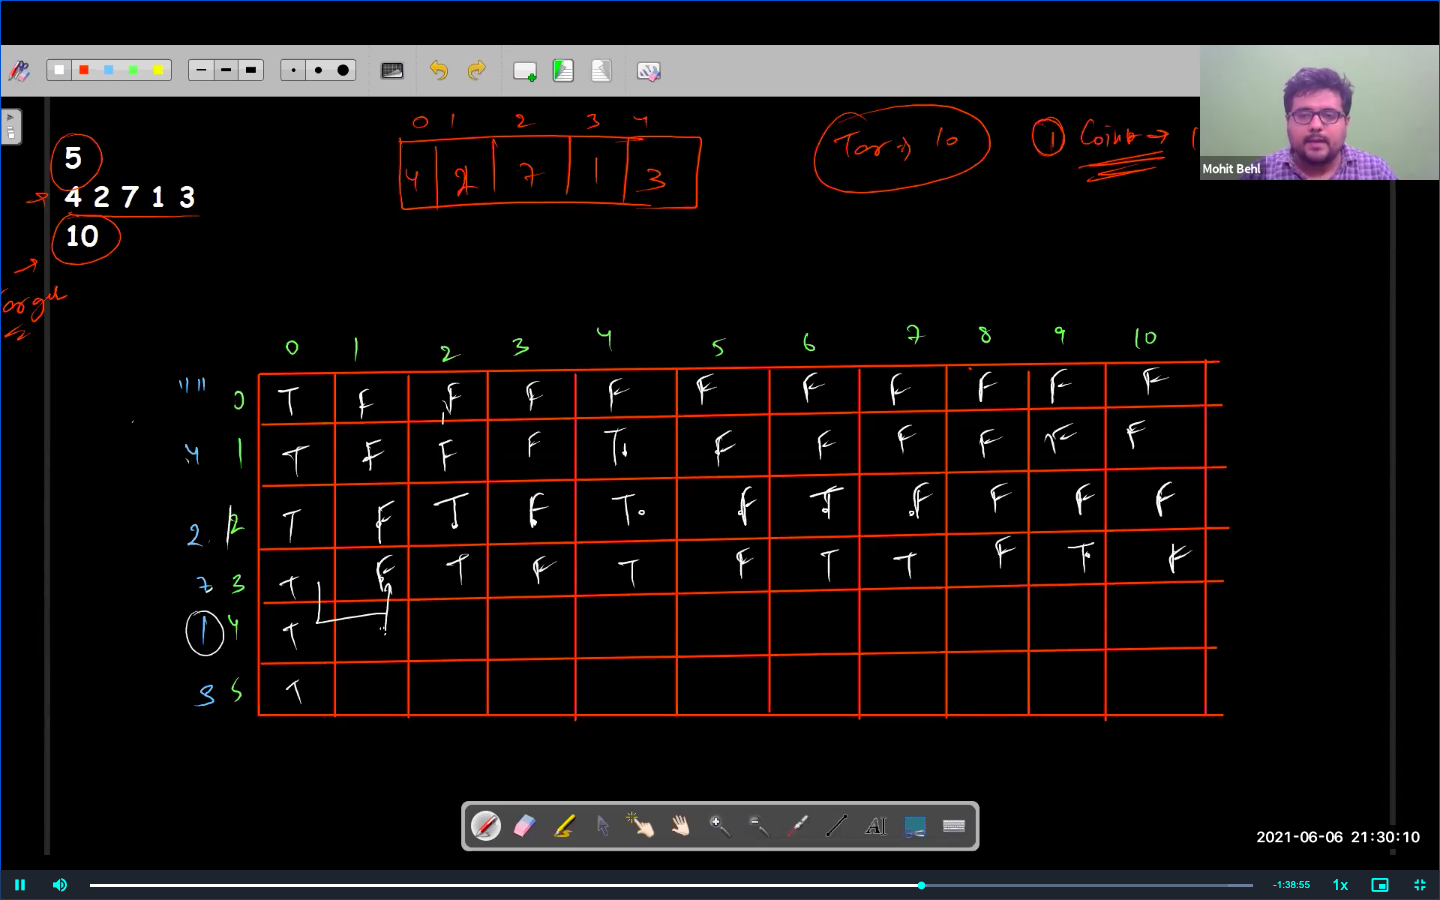 0 1 2 3 4
5
4 2 7 1 3
10
4 2 7 1 3
Tar → 10
① Coins →
Mohit Behl
0 1 2 3 4 5 6 7 8 9 10
"" 0 T F F F F F F F F F F
4 1 T F F F T F F F F F F
2 2 T F T F T F T F F F F
7 3 T F T F T F T T F T F
1 4 T
3 5 T
2021-06-06 21:30:10
-1:38:55 1x